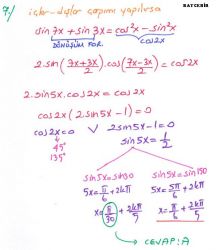 BAYÇEBİR
7/ içler-dışlar çarpımı yapılırsa
sin7x + sin3x = cos²x - sin²x
DÖNÜŞÜM FOR. cos2x
2.sin(7x+3x/2).cos(7x-3x/2) = cos2x
2.sin5x.cos2x = cos2x
cos2x(2sin5x-1) = 0
cos2x = 0 ∨ 2sin5x-1=0
45° sin5x = 1/2
135°
sin5x = sin30 sin5x = sin150
5x = π/6 + 2kπ 5x = 5π/6 + 2kπ
x = π/30 + 2kπ/5 x = π/6 + 2kπ/5
CEVAP: A